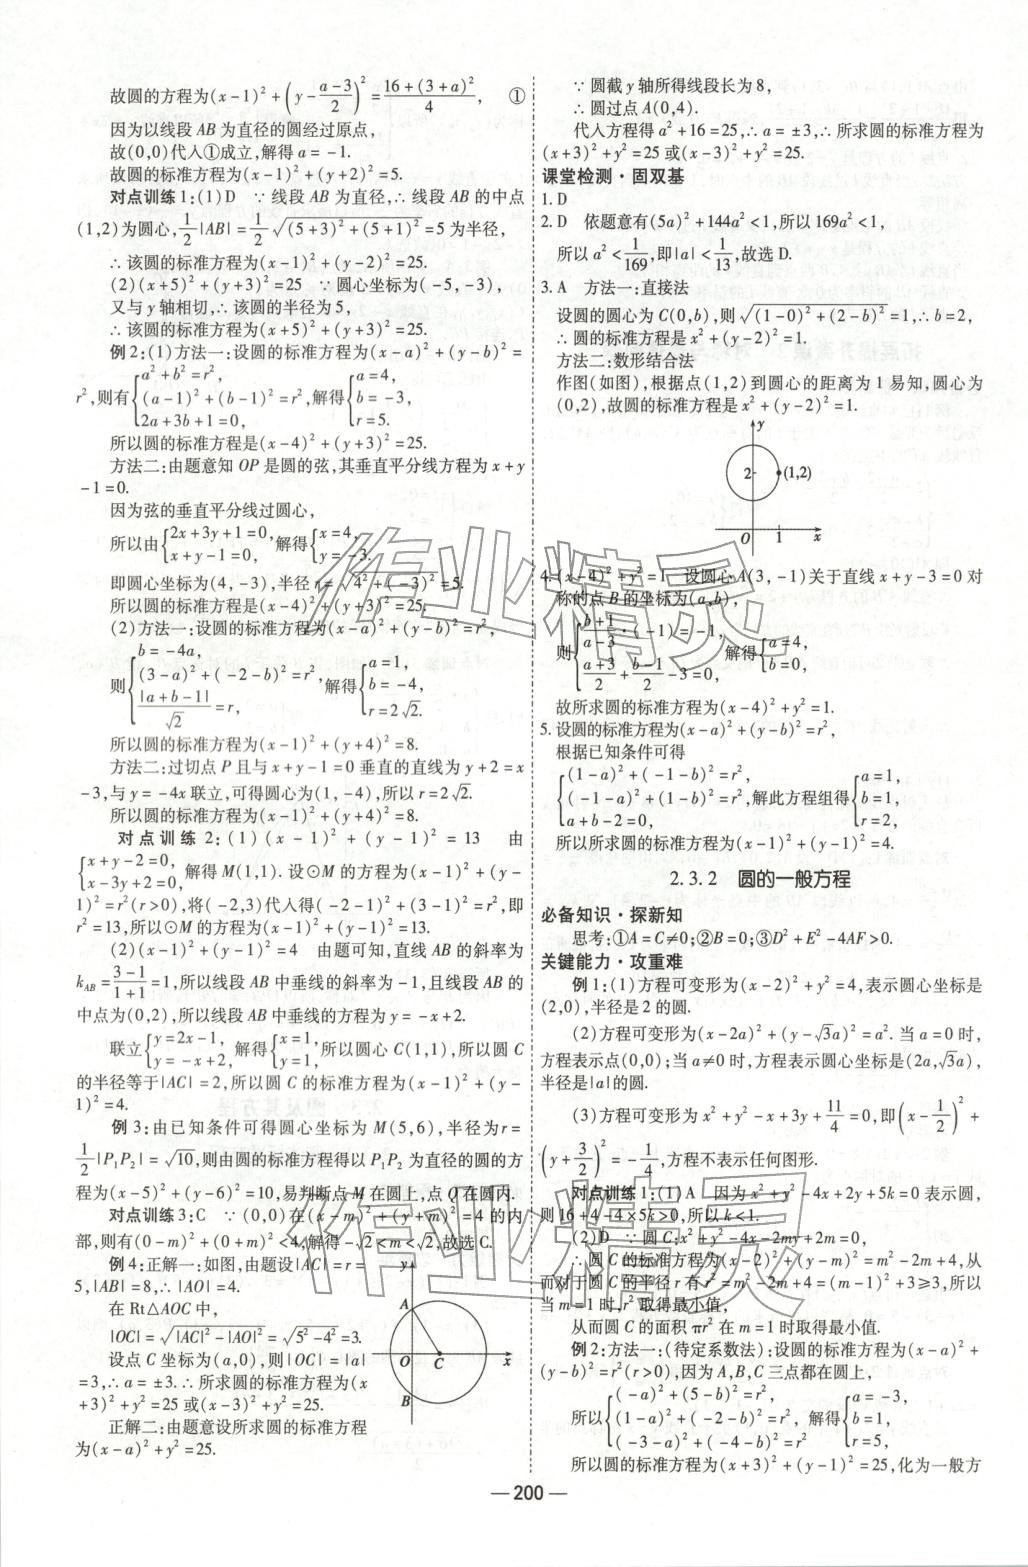 故圆的方程为(x-1)²+(y-(a-3)/2)²=(16+(3+a)²)/4, ①
因为以线段 AB 为直径的圆经过原点,
故(0,0)代入①成立,解得 a=-1.
故圆的标准方程为(x-1)²+(y+2)²=5.
对点训练1:(1)D ∵线段 AB 为直径,∴线段 AB 的中点
(1,2)为圆心,1/2|AB|=1/2√((5+3)²+(5+1)²)=5 为半径,
∴该圆的标准方程为(x-1)²+(y-2)²=25.
(2)(x+5)²+(y+3)²=25 ∵圆心坐标为(-5,-3),
又与 y 轴相切,∴该圆的半径为 5,
∴该圆的标准方程为(x+5)²+(y+3)²=25.
例2:(1)方法一:设圆的标准方程为(x-a)²+(y-b)²=
r²,则有{a²+b²=r², (a-1)²+(b-1)²=r², 2a+3b+1=0, 解得{a=4, b=-3, r=5.
所以圆的标准方程是(x-4)²+(y+3)²=25.
方法二:由题意知 OP 是圆的弦,其垂直平分线方程为 x+y
-1=0.
因为弦的垂直平分线过圆心,
所以由{2x+3y+1=0, x+y-1=0, 解得{x=4, y=-3.
即圆心坐标为(4,-3),半径 r=√(4²+(-3)²)=5.
所以圆的标准方程为(x-4)²+(y+3)²=25.
(2)方法一:设圆的标准方程为(x-a)²+(y-b)²=r²,
则{b=-4a, (3-a)²+(-2-b)²=r², |a+b-1|/√2=r, 解得{a=1, b=-4, r=2√2.
所以圆的标准方程为(x-1)²+(y+4)²=8.
方法二:过切点 P 且与 x+y-1=0 垂直的直线为 y+2=x
-3,与 y=-4x 联立,可得圆心为(1,-4),所以 r=2√2.
所以圆的标准方程为(x-1)²+(y+4)²=8.
对点训练2:(1)(x-1)²+(y-1)²=13 由
{x+y-2=0, x-3y+2=0, 解得 M(1,1).设⊙M 的方程为(x-1)²+(y-
1)²=r²(r>0),将(-2,3)代入得(-2-1)²+(3-1)²=r²,即
r²=13,所以⊙M 的方程为(x-1)²+(y-1)²=13.
(2)(x-1)²+(y-1)²=4 由题可知,直线 AB 的斜率为
k_AB=(3-1)/(1+1)=1,所以线段 AB 中垂线的斜率为-1,且线段 AB 的
中点为(0,2),所以线段 AB 中垂线的方程为 y=-x+2.
联立{y=2x-1, y=-x+2, 解得{x=1, y=1, 所以圆心 C(1,1),所以圆 C
的半径等于|AC|=2,所以圆 C 的标准方程为(x-1)²+(y-
1)²=4.
例3:由已知条件可得圆心坐标为 M(5,6),半径为 r=
1/2|P₁P₂|=√10,则由圆的标准方程得以 P₁P₂ 为直径的圆的方
程为(x-5)²+(y-6)²=10,易判断点 M 在圆上,点 Q 在圆内.
对点训练3:C ∵(0,0)在(x-m)²+(y+m)²=4 的内
部,则有(0-m)²+(0+m)²<4,解得-√2<m<√2,故选 C.
例4:正解一:如图,由题设|AC|=r=
5,|AB|=8,∴|AO|=4.
在 Rt△AOC 中,
|OC|=√(|AC|²-|AO|²)=√(5²-4²)=3.
设点 C 坐标为(a,0),则|OC|=|a|
=3,∴a=±3.∴所求圆的标准方程为(x
+3)²+y²=25 或(x-3)²+y²=25.
正解二:由题意设所求圆的标准方程
为(x-a)²+y²=25.
y
A
O
C
x
B
∵圆截 y 轴所得线段长为 8,
∴圆过点 A(0,4).
代入方程得 a²+16=25,∴a=±3,∴所求圆的标准方程为
(x+3)²+y²=25 或(x-3)²+y²=25.
课堂检测·固双基
1. D
2. D 依题意有(5a)²+144a²<1,所以 169a²<1,
所以 a²<1/169,即|a|<1/13,故选 D.
3. A 方法一:直接法
设圆的圆心为 C(0,b),则√((1-0)²+(2-b)²)=1,∴b=2,
∴圆的标准方程是 x²+(y-2)²=1.
方法二:数形结合法
作图(如图),根据点(1,2)到圆心的距离为 1 易知,圆心为
(0,2),故圆的标准方程是 x²+(y-2)²=1.
y
2
(1,2)
O
1
x
4. (x-4)²+y²=1 设圆心 A(3,-1)关于直线 x+y-3=0 对
称的点 B 的坐标为(a,b),
则{(b+1)/(a-3)·(-1)=-1, (a+3)/2+(b-1)/2-3=0, 解得{a=4, b=0,
故所求圆的标准方程为(x-4)²+y²=1.
5. 设圆的标准方程为(x-a)²+(y-b)²=r²,
根据已知条件可得
{(1-a)²+(-1-b)²=r², (-1-a)²+(1-b)²=r², a+b-2=0, 解此方程组得{a=1, b=1, r=2,
所以所求圆的标准方程为(x-1)²+(y-1)²=4.
2.3.2 圆的一般方程
必备知识·探新知
思考:①A=C≠0;②B=0;③D²+E²-4AF>0.
关键能力·攻重难
例1:(1)方程可变形为(x-2)²+y²=4,表示圆心坐标是
(2,0),半径是 2 的圆.
(2)方程可变形为(x-2a)²+(y-√3a)²=a².当 a=0 时,
方程表示点(0,0);当 a≠0 时,方程表示圆心坐标是(2a,√3a),
半径是|a|的圆.
(3)方程可变形为 x²+y²-x+3y+11/4=0,即(x-1/2)²+
(y+3/2)²=-1/4,方程不表示任何图形.
对点训练1:(1)A 因为 x²+y²-4x+2y+5k=0 表示圆,
则 16+4-4×5k>0,所以 k<1.
(2)D ∵圆 C:x²+y²-4x-2my+2m=0,
∴圆 C 的标准方程为(x-2)²+(y-m)²=m²-2m+4,从
而对于圆 C 的半径 r 有 r²=m²-2m+4=(m-1)²+3≥3,所以
当 m=1 时,r²取得最小值,
从而圆 C 的面积 πr² 在 m=1 时取得最小值.
例2:方法一:(待定系数法):设圆的标准方程为(x-a)²+
(y-b)²=r²(r>0),因为 A,B,C 三点都在圆上,
所以{(-a)²+(5-b)²=r², (1-a)²+(-2-b)²=r², (-3-a)²+(-4-b)²=r² 解得{a=-3, b=1, r=5,
所以圆的标准方程为(x+3)²+(y-1)²=25,化为一般方
— 200 —
作业精灵
作业精灵